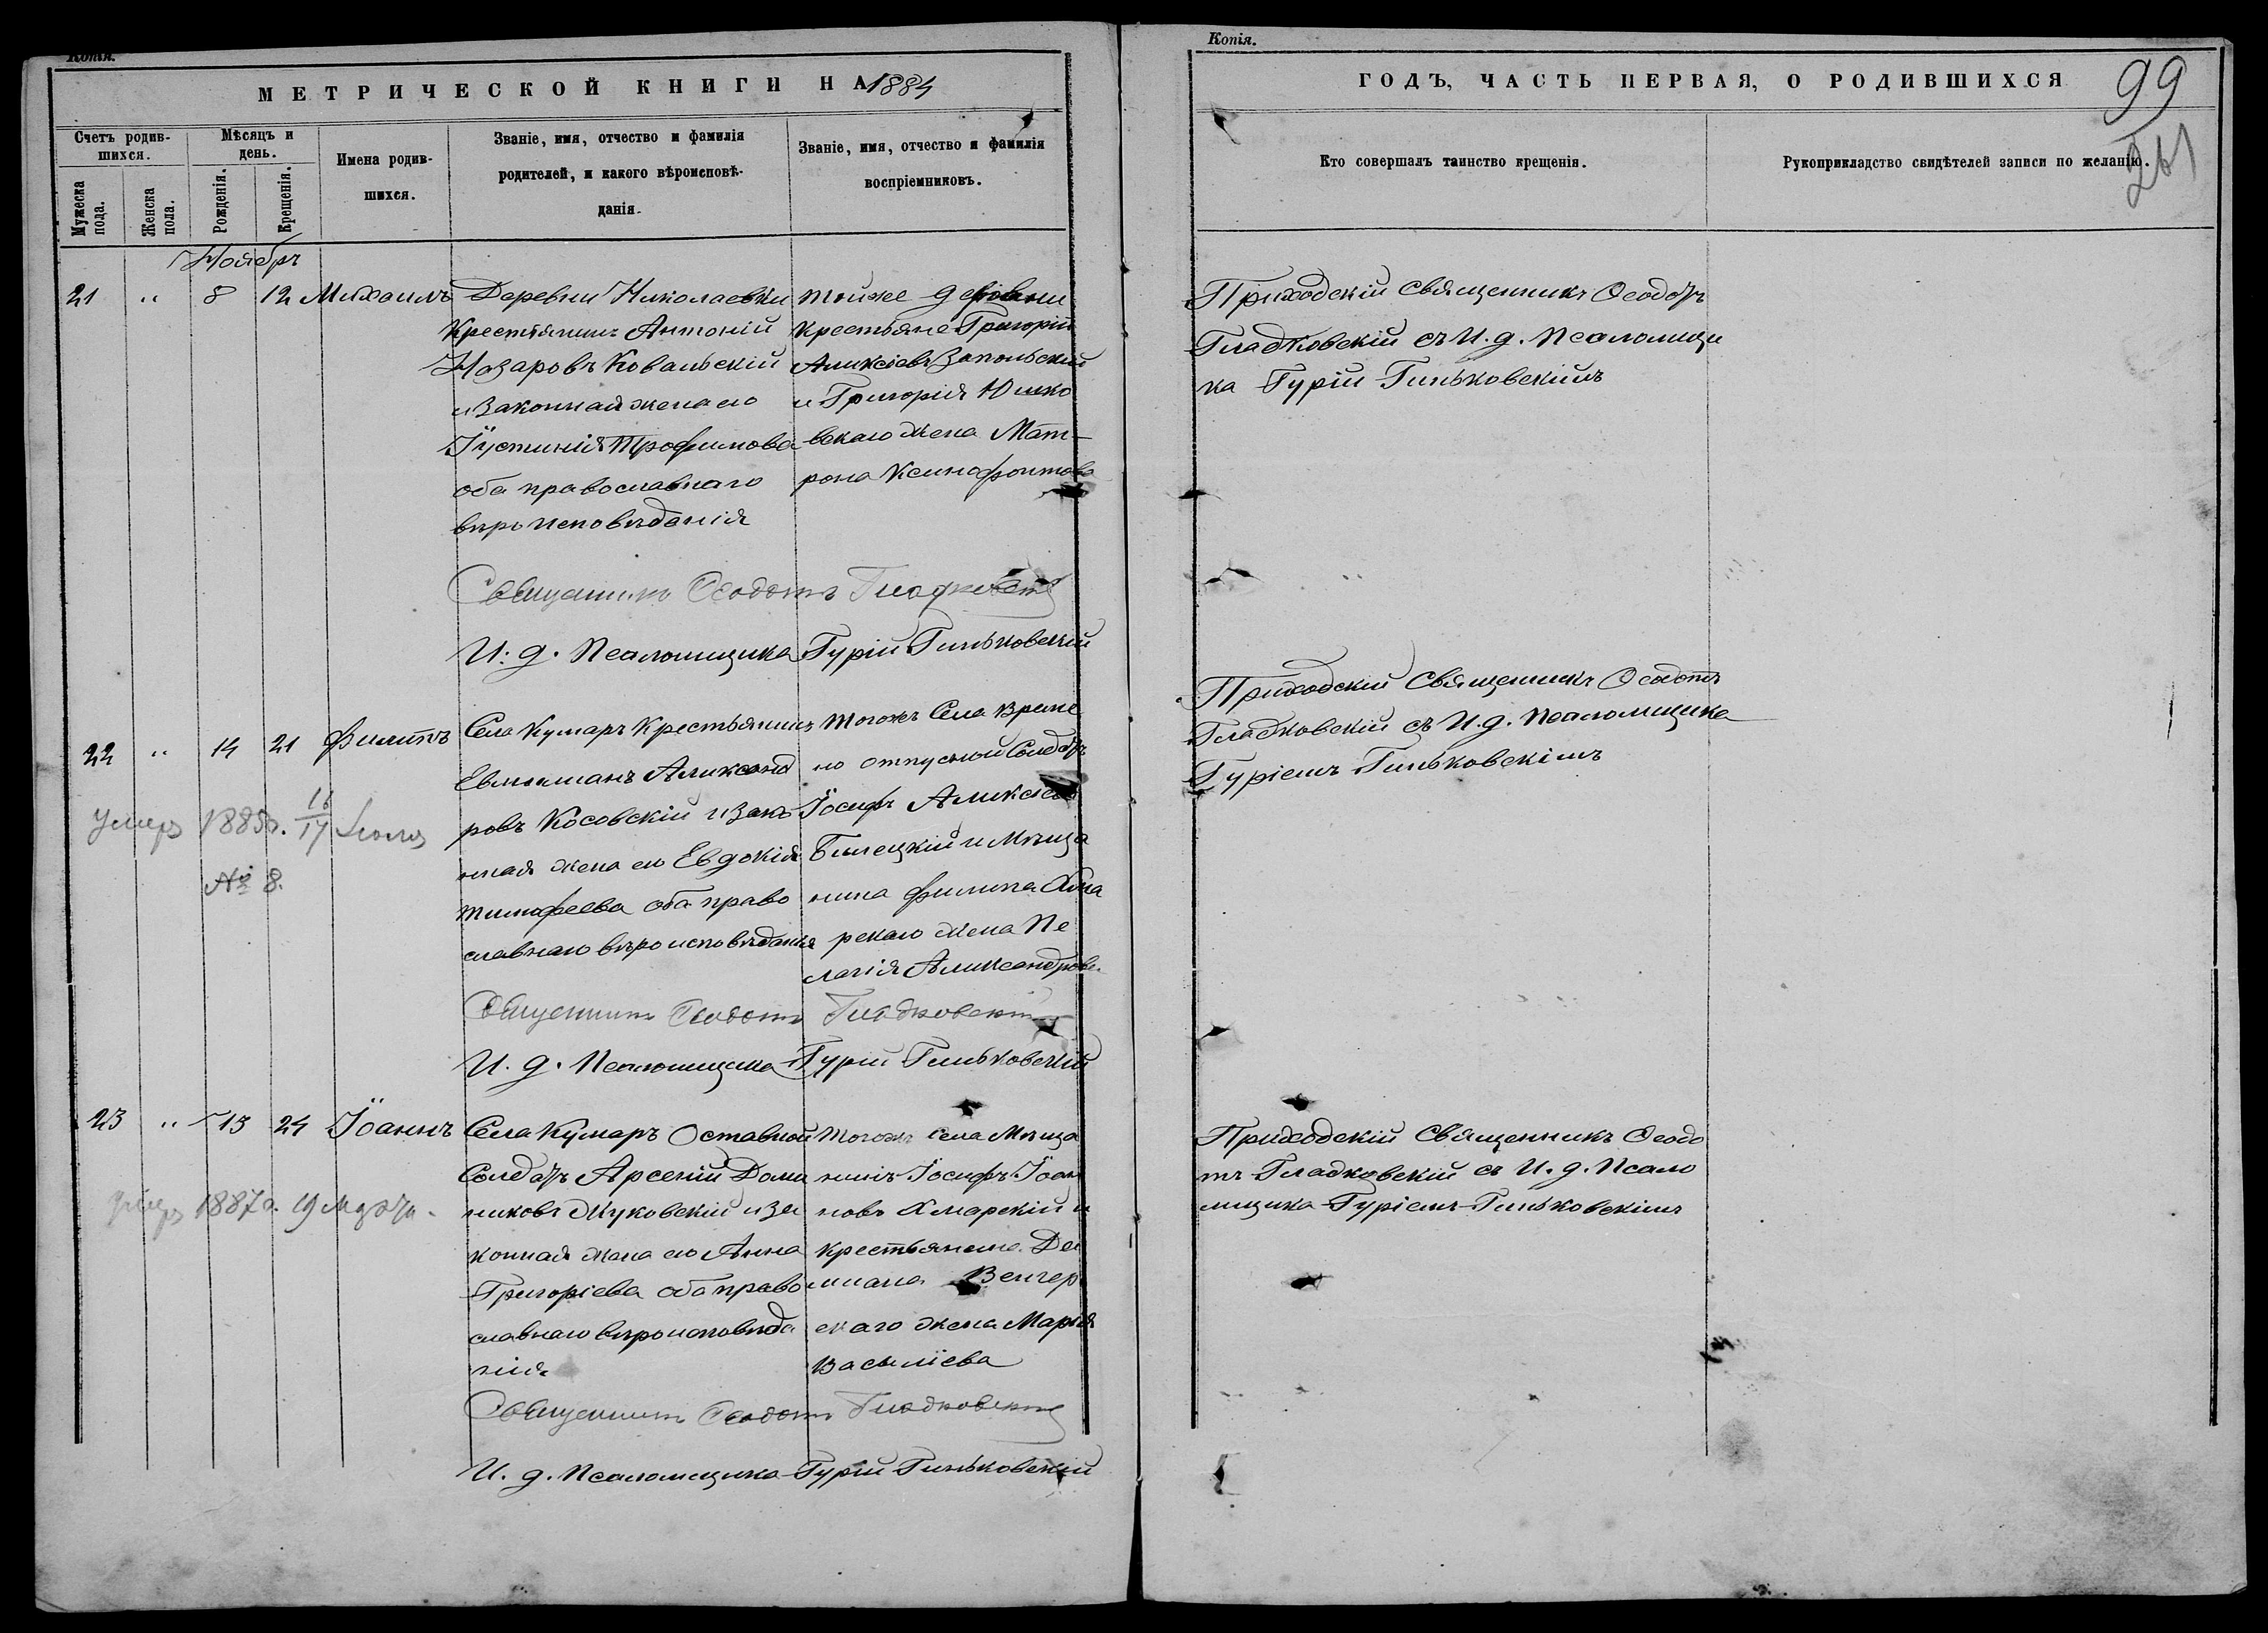 Копія.
МЕТРИЧЕСКОЙ КНИГИ НА 1884
Счетъ родив-
шихся.
Мужеска
пола.
Женска
пола.
Мѣсяцъ и
день.
Рожденія.
Крещенія.
Имена родив-
шихся.
Званіе, имя, отчество и фамилія
родителей, и какого вѣроисповѣ-
данія.
Званіе, имя, отчество и фамилія
воспріемниковъ.
Ноябрь
21 " 8 12 Михаилъ
Деревни Николаевки
Крестьянинъ Антоній
Назаровъ Ковальскій
и Законная жена его
Іустинія Трофимова
оба православнаго
вѣроисповѣданія
тойже деревни
крестьяне Григорій
Аликсіевъ Запольскій
и Григорія Юшко
вскаго жена Мат-
рона Ксинофонтова
Священникъ Ѳеодотъ Гладковскій
И: д. Псаломщика Гурій Гиньковскій
22 " 14 21 Филипъ
Умеръ 1885г. 16/17 Іюля
№ 8.
Села Кумаръ Крестьянинъ
Евмениянъ Аликсанд
ровъ Косовскій и Зако
нная жена его Евдокія
Тимофеева оба право
славнаго вѣроисповѣданія
Тогожъ Села Време
но отпускной Солдатъ
Іосифъ Аликсіевъ
Билецкій и Мѣща
нина Филипа Хма
рскаго жена Пе
лагія Александрова
Священникъ Ѳеодотъ Гладковскій
И. д. Псаломщика Гурій Гиньковскій
23 " 13 24 Іоаннъ
Умеръ 1887г. 19 Марта.
Села Кумаръ Оставной
Солдатъ Арсеній Доми
никовъ Жуковскій и За
конная жена его Анна
Григоріева оба право
славнаго вѣроисповѣда
нія
Тогожъ Села Мѣща
нинъ Іосифъ Іоан
новъ Хмарскій и
Крестьянина Де
миана Венгер
скаго жена Марія
Василіева
Священникъ Ѳеодотъ Гладковскій
И. д. Псаломщика Гурій Гиньковскій
Копія.
ГОДЪ, ЧАСТЬ ПЕРВАЯ, О РОДИВШИХСЯ
99
Кто совершалъ таинство крещенія.
Рукоприкладство свидѣтелей записи по желанію.
Приходскій священникъ Ѳеодотъ
Гладковскій съ И. д. Псаломщи
ка Гурій Гиньковскімъ
Приходскій Священникъ Ѳеодотъ
Гладковскій съ И. д. Псаломщика
Гуріемъ Гиньковскімъ
Приходскій Священникъ Ѳеодо
тъ Гладковскій съ И. д. Псало
мщика Гуріемъ Гиньковскімъ